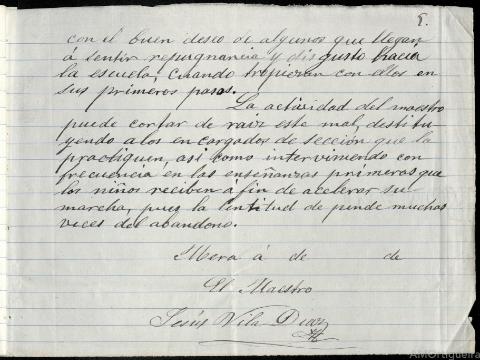 8.
con el buen deseo de algunos que llegan
á sentir repugnancia y disgusto hacia
la escuela, cuando tropiezan con ellos en
sus primeros pasos.
La actividad del maestro
puede cortar de raiz este mal, destitu-
yendo a los encargados de sección que la
practiquen, así como interviniendo con
frecuencia en las enseñanzas primeras que
los niños reciben á fin de acelerar su
marcha, pues la lentitud depende muchas
veces del abandono.
Mera á de de
El Maestro
Jesús Vila
AMOrtigueira